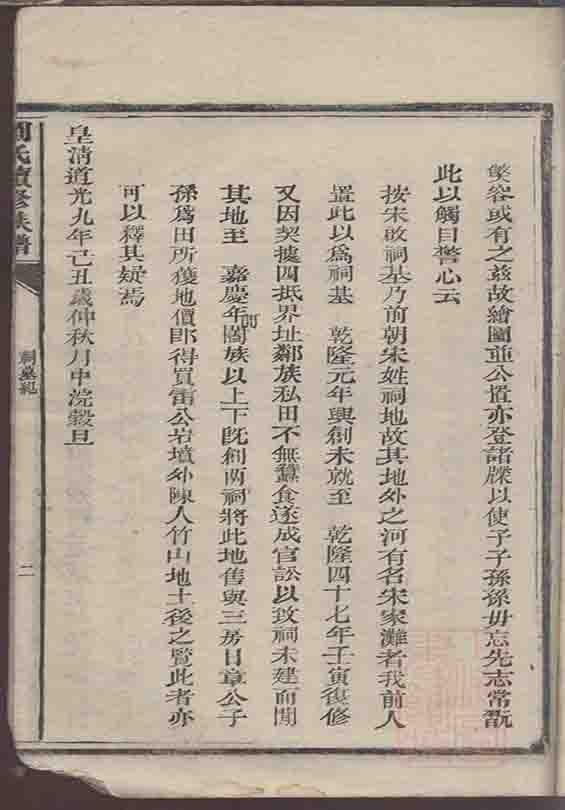 繁容或有之茲故繪圖並公置亦登諸牒以使子子孫孫毋忘先志常翫
此以觸目警心云
按宋啟祠基乃前朝宋姓祠地故其地外之河有名宋家灘者我前人
置此以為祠基 乾隆元年興創未就至 乾隆四十七年壬寅復修
又因契據四抵界址鄰族私田不無蠶食遂成官訟以致祠未建而閒
其地至 嘉慶年間闔族以上下既創兩祠將此地售與三房日章公子
孫為田所獲地價即得買雷公岩墳外陳人竹山地土後之覽此者亦
可以釋其疑焉
皇清道光九年己丑歲仲秋月中浣穀旦
氏續修族譜
祠墓紀
二